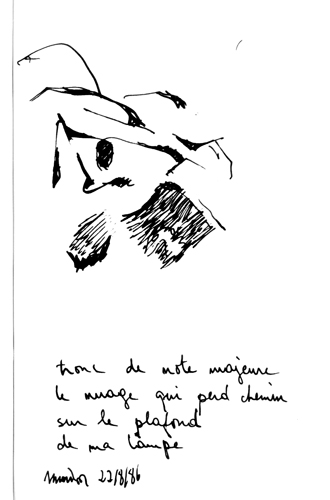 tronc de note majeure
le nuage qui perd chemin
sur le plafond
de ma lampe
22/8/86